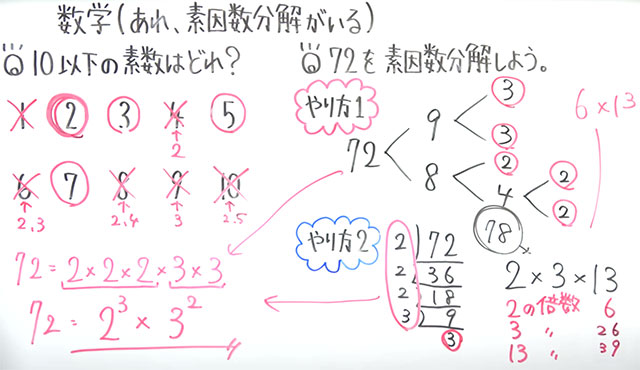 数学(あれ、素因数分解がいる)
Q10以下の素数はどれ?
1 2 3 4 5
2
6 7 8 9 10
2,3 2,4 3 2,5
72=2×2×2×3×3
72=2³×3²
Q72を素因数分解しよう。
やり方1
72
9
8
3
3
2
4
2
2
6×13
やり方2
2 72
2 36
2 18
3 9
3
78
2×3×13
2の倍数 6
3 〃 26
13 〃 39